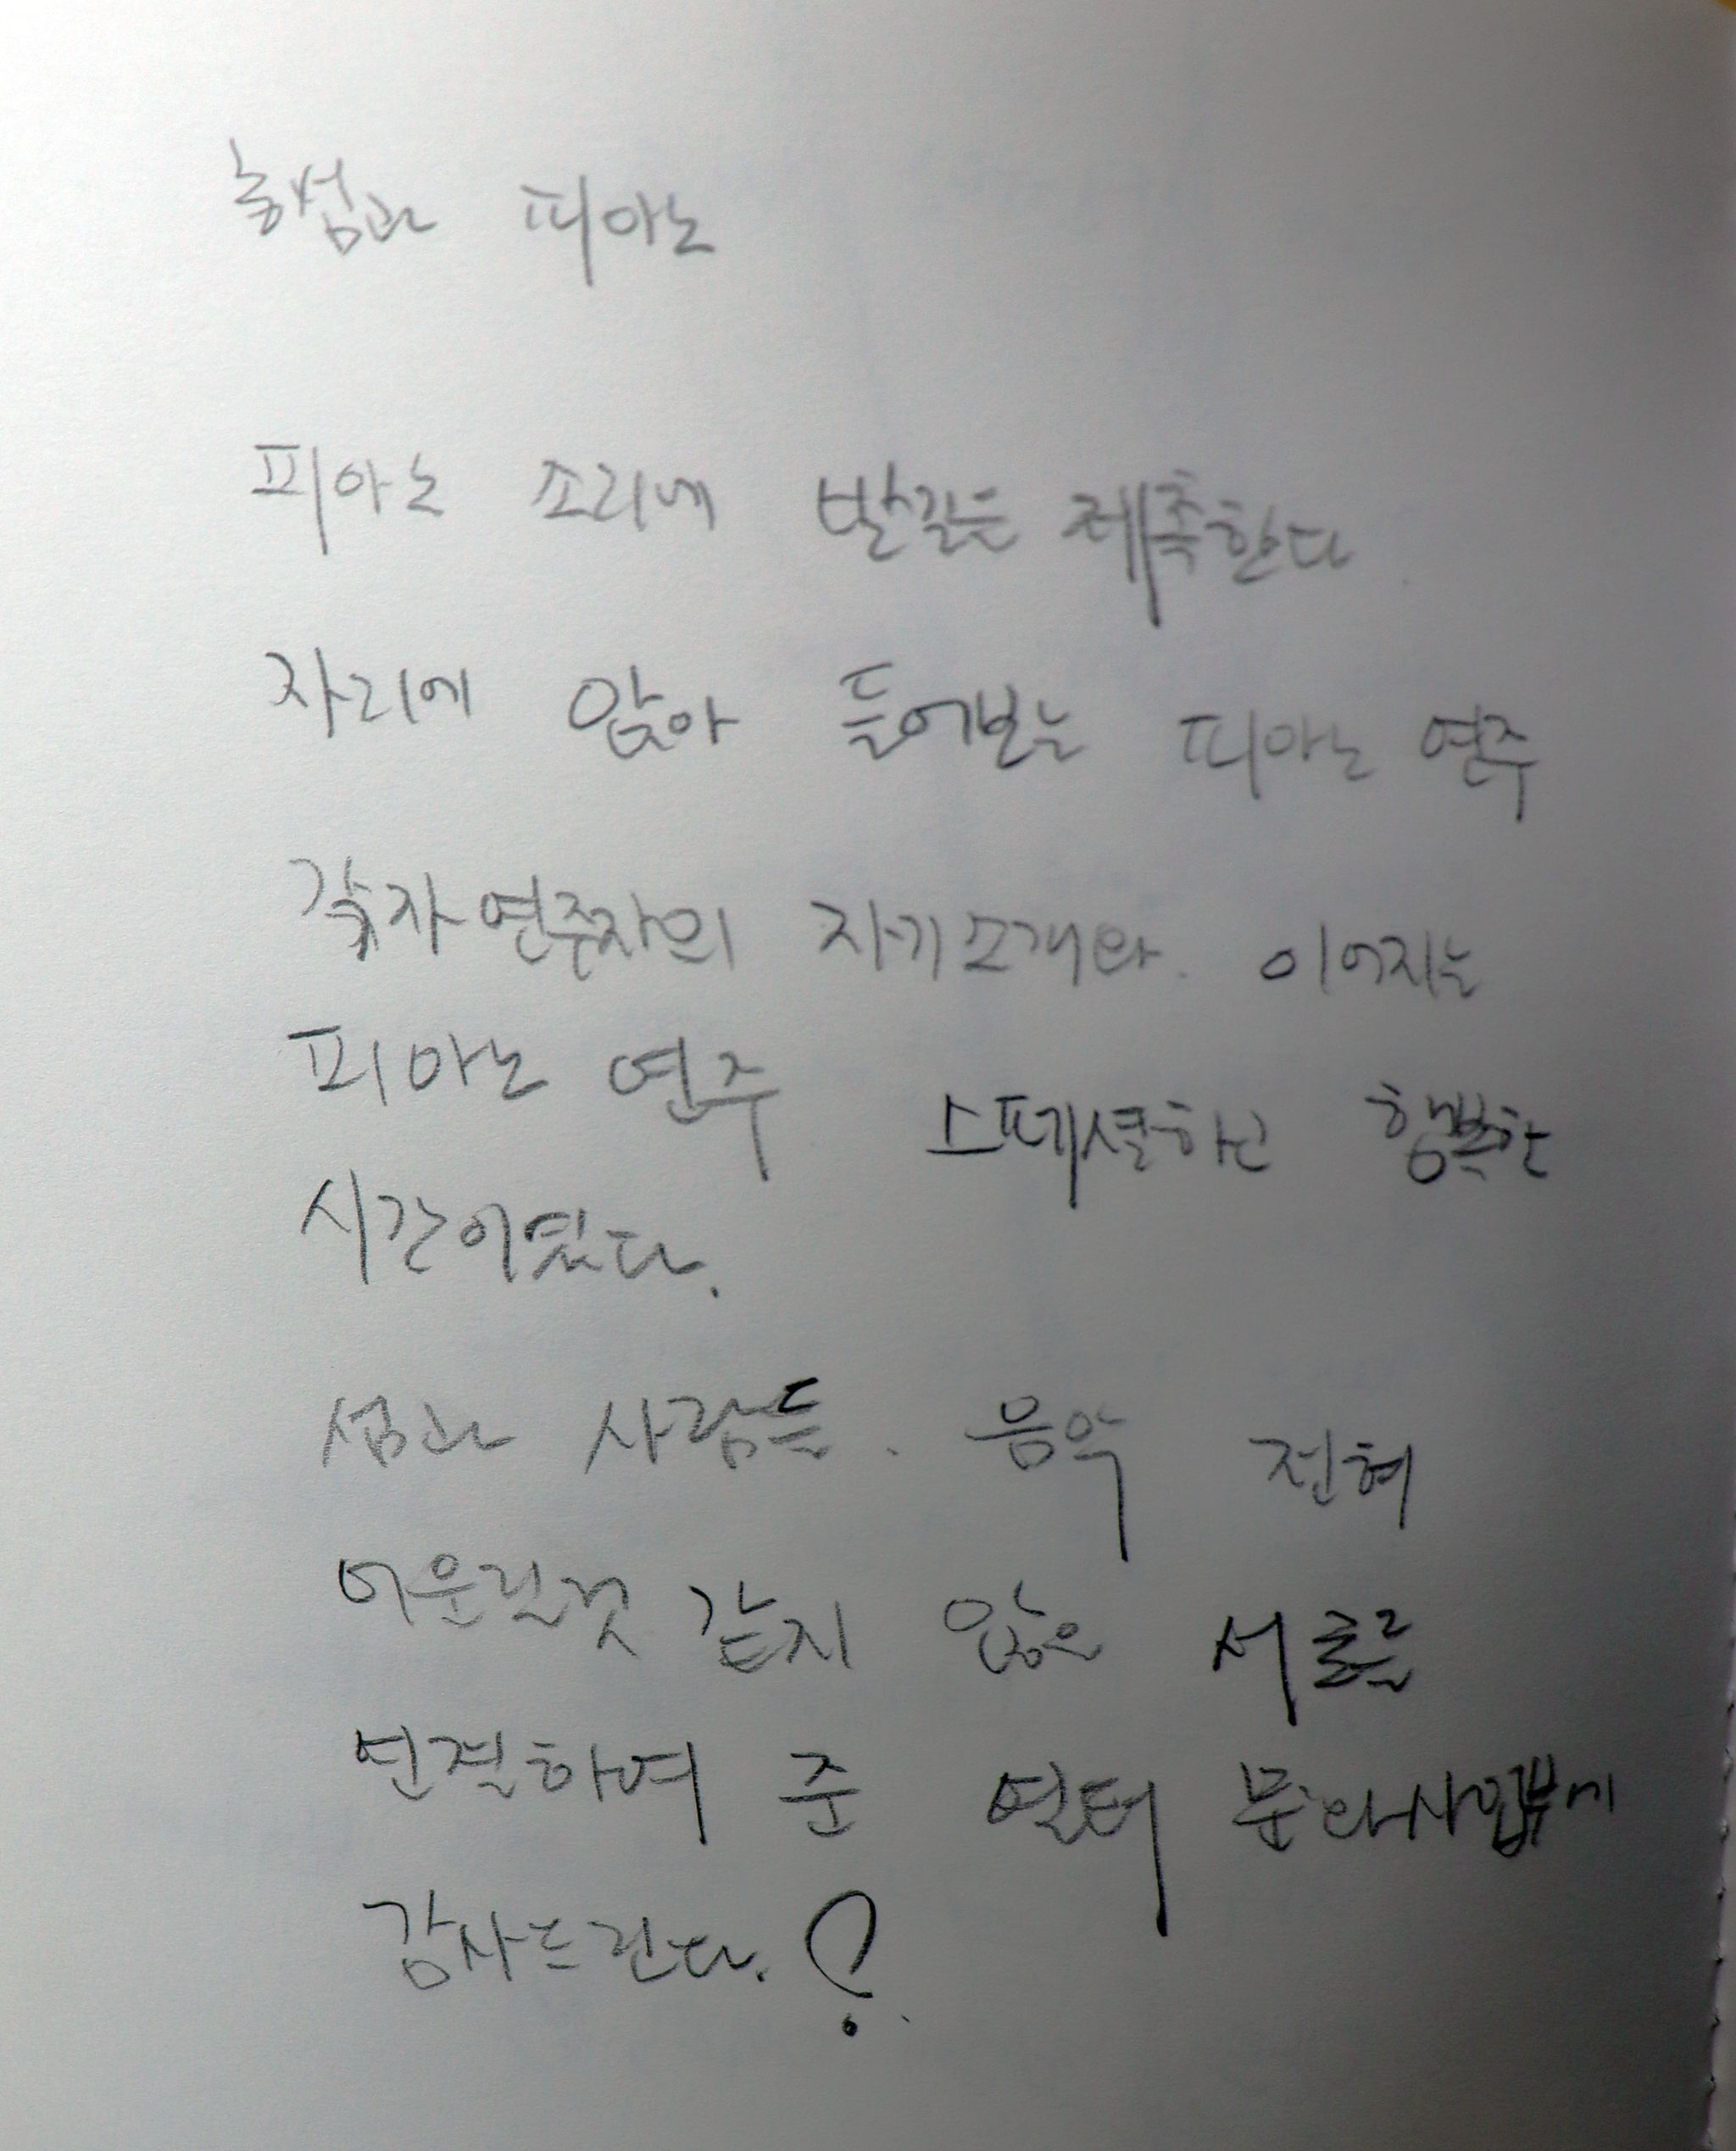 농섬과 피아노
피아노 소리에 발길을 제촉한다
자리에 앉아 들어보는 피아노 연주
각자 연주자의 자기소개와. 이어지는
피아노 연주 스페셜하고 행복한
시간이였다.
섬과 사람들. 음악 전혀
어울릴것 같지 않은 서로를
연결하여 준 열터 문화사업부에
감사드린다.